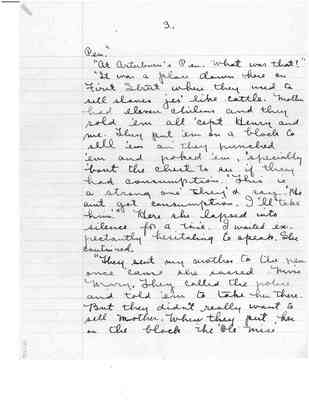 3.
Pen."
"At Arterburn's Pen. What was that?"
"It was a place down there on
First Street where they used to
sell slaves jes' like cattle. Mother
had eleven chilens and they
sold 'em all 'cept Henry and
me. They put 'em on a block to
sell 'em an' they punched
'em and poked 'em, 'specially
'bout the chest to see if they
had consumption. 'This is
a strong one' they'd say. 'He
aint got consumption. I'll take
him.'" Here she lapsed into
silence for a time. I waited ex-
pectantly hesitating to speak. She
continued.
"They sent my mother to the pen
once cause she sassed Miss
Mary. They called the police
and told 'em to take her there.
But they didn't really want to
sell mother. When they put her
on the block the Ole Miss